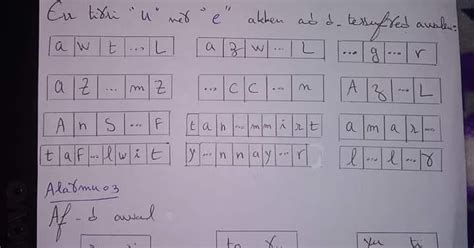 Err tirii "u" neɣ "e" akken ad d-tessufɣeḍ awalen:
a w t ... L   a z w ... L   ... g ... r
a Z ... m Z   ... c c ... n   A z ... L
A n S ... F   t a n ... m m i r t   a m a r ...
t a F ... l w i t   y ... n n a y ... r   l ... l ... r
Alaɣmu 03
Af-d awal